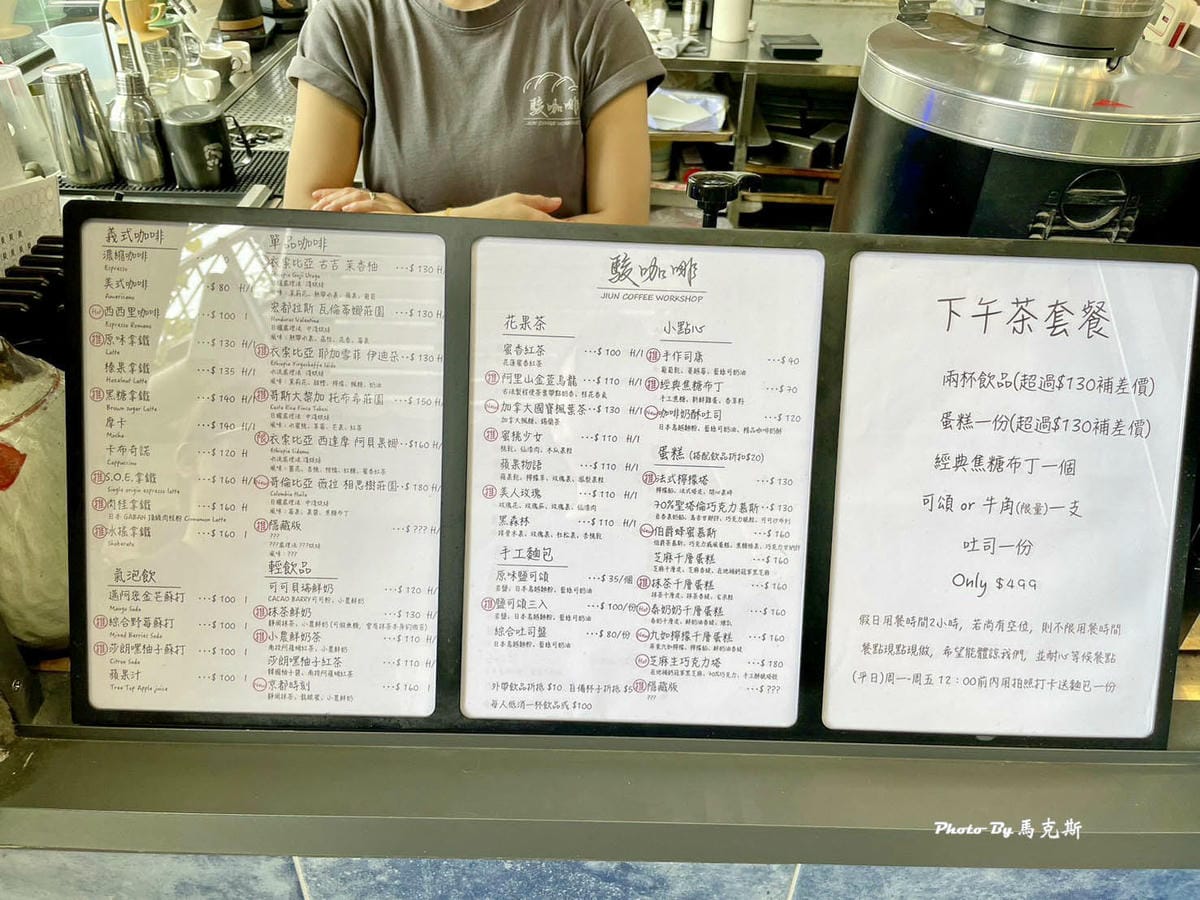 駿咖啡
JIUN COFFEE WORKSHOP
義式咖啡
濃縮咖啡
Espresso
美式咖啡 $80 H/I
Americano
西西里咖啡 $100 I
Espresso Romano
推 原味拿鐵 $130 H/I
Latte
榛果拿鐵 $135 H/I
Hazelnut Latte
推 黑糖拿鐵 $140 H/I
Brown sugar Latte
摩卡 $140 H/I
Mocha
卡布奇諾 $120 H
Cappuccino
推 S.O.E.拿鐵 $160 H/I
Single origin espresso latte
推 肉桂拿鐵 $160 H
日本 GABAN 頂級肉桂粉 Cinnamon Latte
推 冰搖拿鐵 $160 I
Shakerato
氣泡飲
邁阿密金芒蘇打 $100 I
Mango Soda
推 綜合野莓蘇打 $100 I
Mixed Berries Soda
推 莎朗嘿柚子蘇打 $100 I
Citrus Soda
蘋果汁 $100 I
Tree Top Apple juice
單品咖啡
衣索比亞 古吉 茉香柚 $130 H/
宏都拉斯 瓦倫蒂娜莊園 $130 H/
Honduras Valentina
推 衣索比亞 耶加雪菲 伊迪朵 $130 H
推 哥斯大黎加 托布希莊園 $150 H
衣索比亞 西達摩 阿貝果娜 $160 H/
Ethiopia Sidama
New 哥倫比亞 薇拉 相思樹莊園 $180 H/
Colombia Huila
隱藏版 $ ??? H/
???
???處理法 ???烘焙
風味：???
輕飲品
可可貝瑞鮮奶 $120 H/
CACAO BARRY可可粉，小農鮮奶
推 抹茶鮮奶 $130 H/
推 小農鮮奶茶 $110 H/
莎朗嘿柚子紅茶 $110 H/
New 京都時刻 $160 I
駿咖啡
JIUN COFFEE WORKSHOP
花果茶
蜜香紅茶 $100 H/I
花蓮蜜香紅茶
推 阿里山金萱烏龍 $110 H/I
New 加拿大國寶楓葉茶 $130 H/I
推 蜜桃少女 $110 H/I
蘋果物語 $110 H/I
推 美人玫瑰 $110 H/I
黑森林 $110 H/I
手工麵包
原味鹽可頌 $35/個
岩鹽，日本鳥越麵粉，藍絲可奶油
推 鹽可頌三入 $100/份
岩鹽，日本鳥越麵粉，藍絲可奶油
綜合吐司盤 $80/份
日本鳥越麵粉，藍絲可奶油
外帶飲品折抵 $10 自備杯子折抵 $5
每人低消一杯飲品或 $100
小點心
推 手作司康 $40
推 經典焦糖布丁 $70
New 咖啡奶酥吐司 $120
蛋糕 (搭配飲品折扣$20)
推 法式檸檬塔 $130
70%聖塔倫巧克力慕斯 $130
New 伯爵蜂蜜慕斯 $160
芝麻千層蛋糕 $160
推 抹茶千層蛋糕 $160
泰奶奶千層蛋糕 $160
九如檸檬千層蛋糕 $160
芝麻生巧克力塔 $180
隱藏版 $ ???
下午茶套餐
兩杯飲品(超過$130補差價)
蛋糕一份(超過$130補差價)
經典焦糖布丁一個
可頌 or 牛角(限量)一支
吐司一份
Only $499
假日用餐時間2小時，若尚有空位，則不限用餐時間
餐點現點現做，希望能體諒我們，並耐心等候餐點
(平日)周一-周五 12：00前內用拍照打卡送麵包一份
Photo By 馬克斯